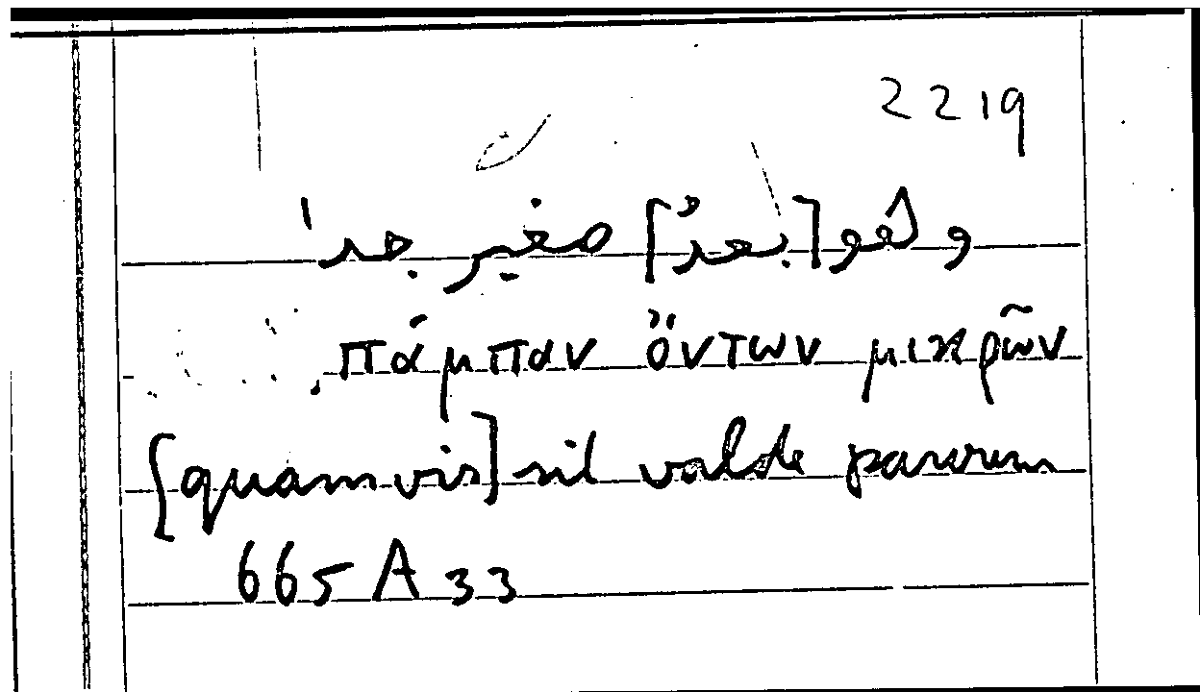 2219
وهو [بعدُ] صغير جدا
πάμπαν ὄντων μικρῶν
[quamvis] sit valde parvum
665 A 33